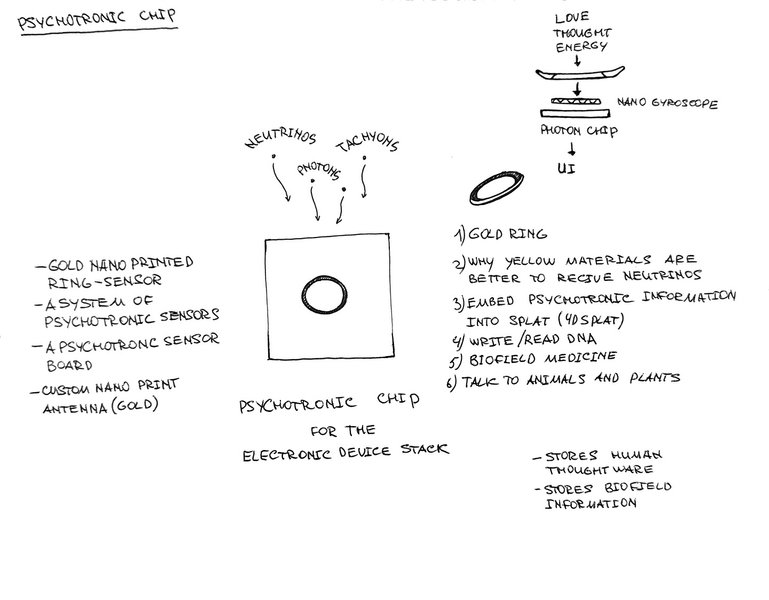 PSYCHOTRONIC CHIP
LOVE
THOUGHT
ENERGY
NANO GYROSCOPE
PHOTON CHIP
UI
NEUTRINOS
PHOTONS
TACHYONS
- GOLD NANO PRINTED
RING-SENSOR
- A SYSTEM OF
PSYCHOTRONIC SENSORS
- A PSYCHOTRONC SENSOR
BOARD
- CUSTOM NANO PRINT
ANTENNA (GOLD)
PSYCHOTRONIC CHIP
FOR THE
ELECTRONIC DEVICE STACK
1) GOLD RING
2) WHY YELLOW MATERIALS ARE
BETTER TO RECIVE NEUTRINOS
3) EMBED PSYCHOTRONIC INFORMATION
INTO SPLAT (4D SPLAT)
4) WRITE/READ DNA
5) BIOFIELD MEDICINE
6) TALK TO ANIMALS AND PLANTS
- STORES HUMAN
THOUGHTWARE
- STORES BIOFIELD
INFORMATION